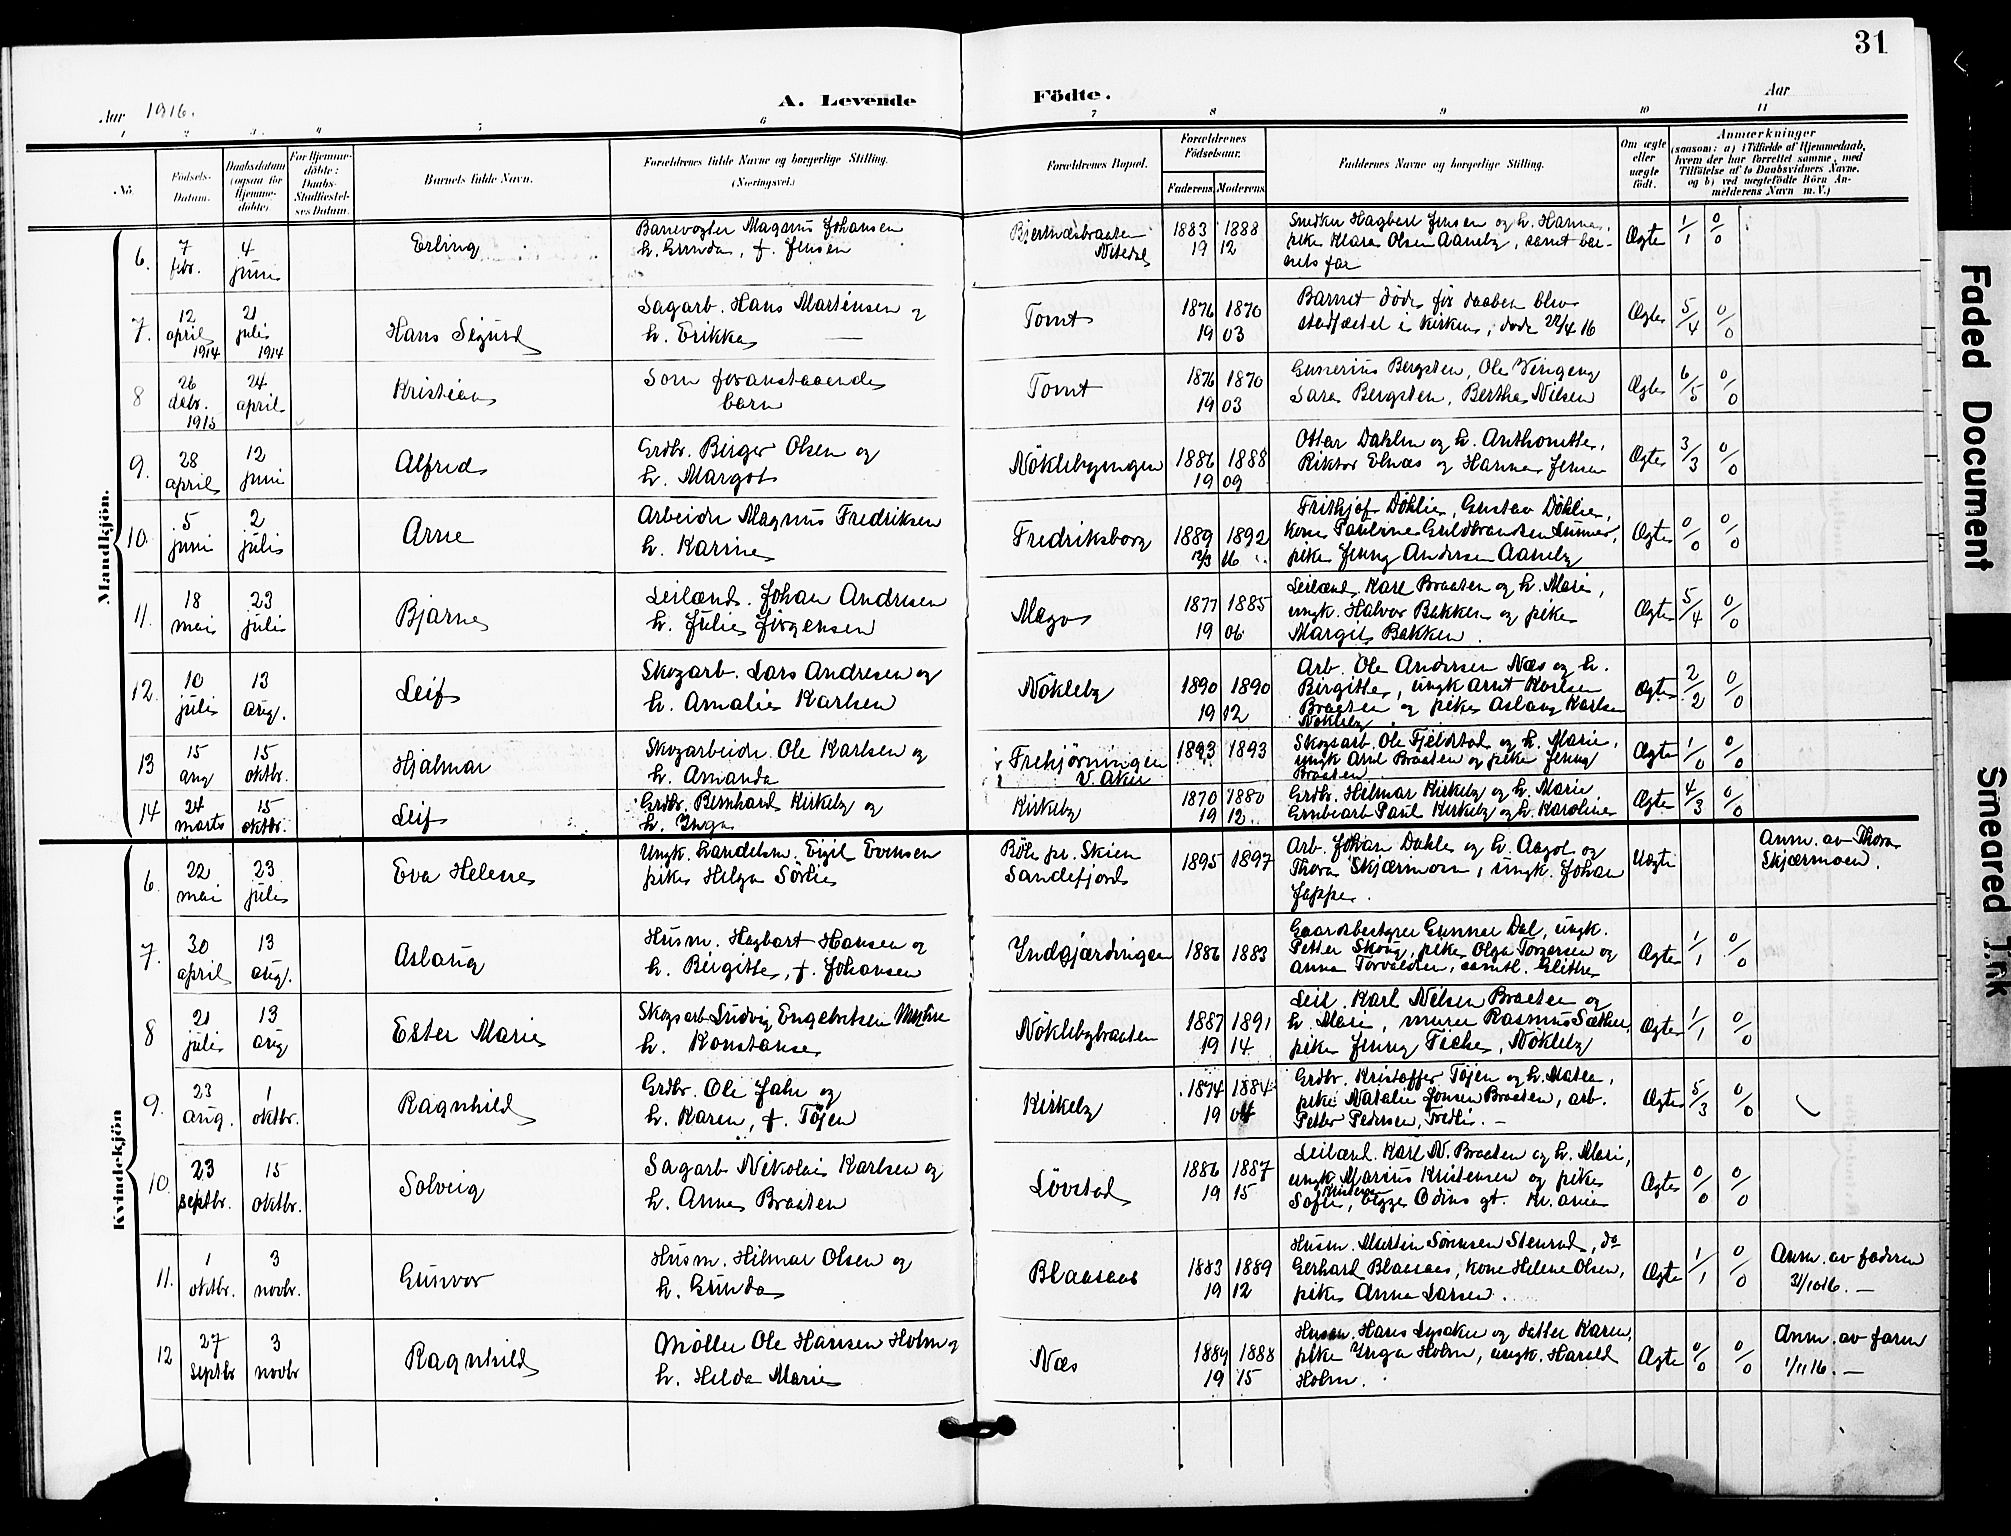 31
Aar 1916.
A. Levende
Födte.
Aar
1 2 3 4 5 6 7 8 9 10 11
No.
Födsels-Datum.
Daabsdatum (ogsaa for Hjemmedöbte)
For Hjemmedöbte: Daabs-Stadfæstelses Datum.
Barnets fulde Navn.
Forældrenes fulde Navne og borgerlige Stilling.
(Næringsvei.)
Forældrenes Bopæl.
Forældrenes Födselsaar.
Faderens Moderens
Faddernes Navne og borgerlige Stilling.
Om ægte eller uægte födt.
Anmærkninger
(saasom: a) i Tilfælde af Hjemmedaab,
hvem der har forrettet samme, med
Tilföielse af to Daabsvidners Navne.
og b) ved uægtefödte Börn An-
melderens Navn m. V.)
Mandkjön.
6. 7 febr. 4 juni Erling
Banevogter Magnus Johansen
h. Gunda, f. Jensen
Nitedal
1883 1888
19 12
Snedker Hagbart Jensen og h. Hanna,
pike Klara Olsen Aaneby, samt bar-
nets far
Ægte 1/1 0/0
7. 12 april 1914 21 juli 1914 Hans Sigurd
Sagarb. Hans Martinsen og
h. Erikka
Tomt
1876 1870
19 03
Barnet døde før daaben blev
stadfæstet i kirken, døde 22/4 16
Ægte 5/4 0/0
8 26 debr. 1915 24 april Kristian
Som foranstaaende
barn
Tomt
1876 1870
19 03
Gunerius Bergsten, Ole Vingeng
Sara Bergsten, Bertha Nilsen
Ægte 6/5 0/0
9. 28 april 12 juni Alfred
Grdbr. Birger Olsen og
h. Margot
Nöklebyengen
1886 1888
19 09
Ottar Dahlen og h. Anthonette,
Riktor Elnæs og Hanna Jensen
Ægte 3/3 0/0
10. 5 juni 2 juli Arne
Arbeider Magnus Fredriksen
h. Karine
Fredriksborg
1889 1892
Frithjof Döhlie, Gustav Döhlie,
kone Pauline Guldbrandsen Lunner,
pike Jenny Andersen Aaneby
Ægte 0/0 0/0
11. 18 mai 23 juli Bjarne
Leilænd. Johan Andresen
h. Julie Jörgensen
Mago
1877 1885
19 06
Leilænd. Karl Braaten og h. Marie,
ungk. Halvor Bakken og pike
Margit Bakken.
Ægte 5/4 0/0
12. 10 juli 13 aug. Leif
Skogarb. Lars Andresen og
h. Amalie Karlsen
Nökleby
1890 1890
19 12
Arb. Ole Andersen Næs og h.
Birgitte, ungk Arnt Karlsen
Braaten og pike Aslaug Karlsen
Nökleby.
Ægte 2/2 0/0
13 15 aug 15 oktbr. Hjalmar
Skogarbeider Ole Karlsen og
h. Amanda
Frekjörningen
V. Aker
1893 1893
Skogsarb. Ole Fjeldstad og h. Marie,
ungk Arnt Braaten og pike Jenny
Braaten
Ægte 1/0 0/0
14 24 marts 15 oktbr. Leif
Grdbr. Bernhard Kirkeby og
h. Inga
Kirkeby
1870 1880
19 12.
Grdbr. Hilmar Kirkeby og h. Marie
Grubearb Paul Kirkeby og h. Karoline
Ægte 4/3 0/0
Kvindekjön
6. 22 mai 23 juli Eva Helene
Ungk. handelsm. Eigil Evensen
pike Helga Sörlie
Böle pr. Skien
Sandefjord
1895 1897
Arb. Johan Dahle og h. Aagot og
Thora Skjærmoen, ungk. Johan
Jappe.
Uægte
Anm. av Thora
Skjærmoen.
7. 30 april 13 aug. Aslaug
Husm. Hagbart Hansen og
h. Birgitte, f. Johansen
Yndgjærdingen
1886 1883
Gaardbestyrer Gunnar Dal, ungk.
Petter Skoug, pike Olga Torgersen og
Anna Torvaldsen, samtl. Glittre
Ægte 1/1 0/0
8 21 juli 13 aug Ester Marie
Skogsarb Ludvig Engebretsen
h. Konstanse
Nöklebybraaten
1887 1891
19 14
Leil. Karl Nilsen Braaten og
h. Mari, murer Rasmus Sæther,
pike Jenny Fiche, Nökleby
Ægte 1/1 0/0
9. 23 aug. 1 oktbr. Ragnhild
Grdbr. Ole Jahr og
h. Karen, f. Töjen
Kirkeby
1874 1884
19 04
Grdbr. Kristoffer Töjen og h. Mathea,
pike Natalie Jonsen Braaten, arb.
Petter Pedersen, Fredli. —
Ægte 5/3 0/0
10. 23 septbr. 15 oktbr. Solveig
Sagarb Nikolai Karlsen og
h. Anna Braaten
Lövstad
1886 1887
19 15
Leilænd. Karl N. Braaten og h. Mari,
ungk Marius Kristensen og pike
Sofie Kristensen, begge Odins gt. Kr.ania
Ægte 0/0 0/0
11. 1 oktbr. 3 novbr. Gunvor
Husm. Hilmar Olsen og
h. Gunda
Blaasaas
1883 1889
19 12
Husm. Martin Sörensen Stenrud, do
Gerhard Blaasaas, kone Helene Olsen,
pike Anna Larsen.
Ægte 1/1 0/0
Anm. av faderen
31/10 16. —
12 27 septbr 3 novbr Ragnhild
Møller Ole Hansen Holm og
h. Hilda Marie
Næs
1889 1888
19 15
Husm. Hans Lysaker og datter Karen,
pike Ynga Holm, ungk. Harald
Holm.
Ægte 0/0 0/0
Anm. av faren
1/11 16. —
Faded Document
Smeared Ink